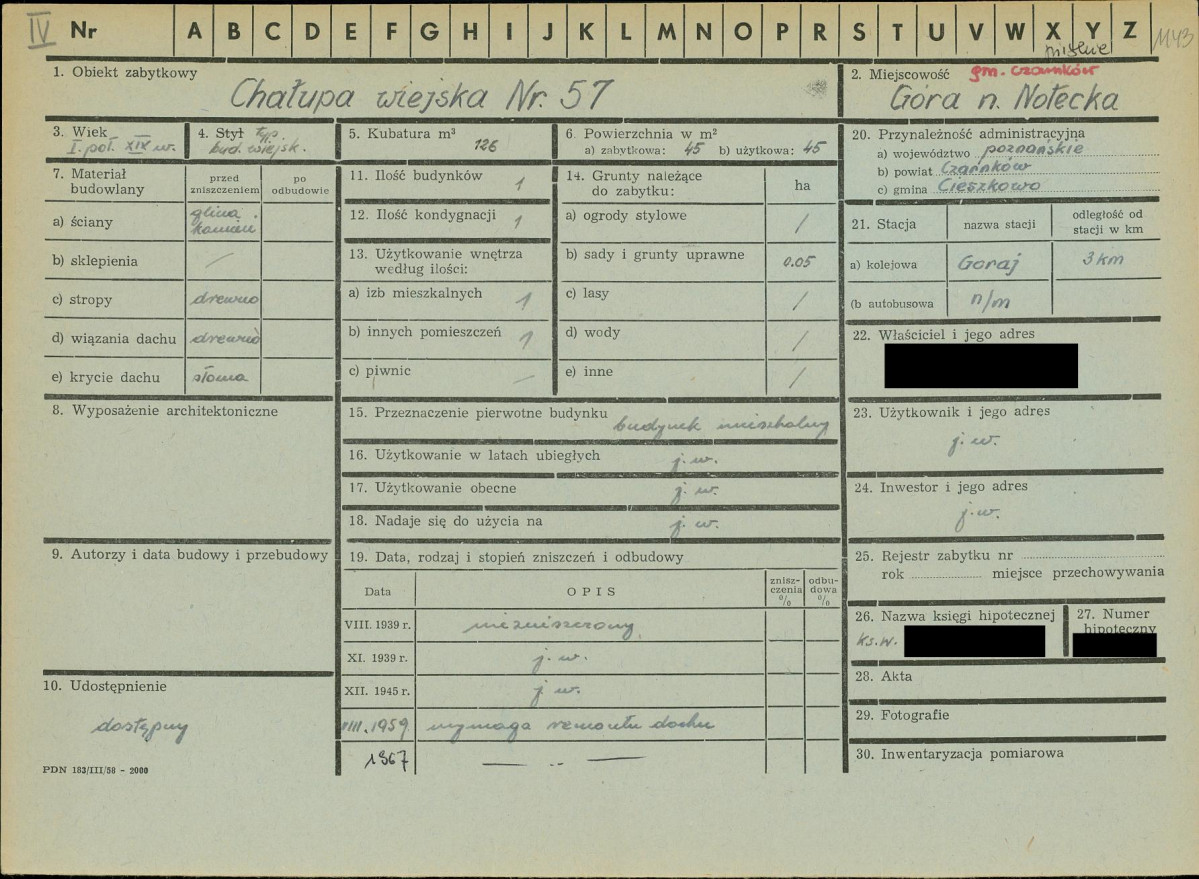 IV Nr A B C D E F G H I J K L M N O P R S T U V W X Y Z 1143
1. Obiekt zabytkowy
Chałupa wiejska Nr. 57
2. Miejscowość gm. Czarnków
Góra n. Notecka
3. Wiek
I. poł. XIX w.
4. Styl typ.
bud. wiejsk.
5. Kubatura m³
126
6. Powierzchnia w m²
a) zabytkowa: 45 b) użytkowa: 45
7. Materiał budowlany
przed zniszczeniem
po odbudowie
a) ściany
glina.
kamień
b) sklepienia /
c) stropy drewno
d) wiązania dachu drewno
e) krycie dachu słoma
8. Wyposażenie architektoniczne
9. Autorzy i data budowy i przebudowy
10. Udostępnienie
dostępny
PDN 183/III/58 - 2000
11. Ilość budynków 1
12. Ilość kondygnacji 1
13. Użytkowanie wnętrza
według ilości:
a) izb mieszkalnych 1
b) innych pomieszczeń 1
c) piwnic —
14. Grunty należące
do zabytku:
ha
a) ogrody stylowe /
b) sady i grunty uprawne 0.05
c) lasy /
d) wody /
e) inne /
15. Przeznaczenie pierwotne budynku
budynek mieszkalny
16. Użytkowanie w latach ubiegłych j. w.
17. Użytkowanie obecne j. w.
18. Nadaje się do użycia na j. w.
19. Data, rodzaj i stopień zniszczeń i odbudowy
Data
OPIS
znisz-
czenia
%
odbu-
dowa
%
VIII. 1939 r. niezniszczony
XI. 1939 r. j. w.
XII. 1945 r. j w.
VIII. 1959 wymaga remontu dachu
1967 — .. —
20. Przynależność administracyjna
a) województwo poznańskie
b) powiat Czarnków
c) gmina Cieszkowo
21. Stacja
nazwa stacji
odległość od
stacji w km
a) kolejowa Goraj 3 km
(b autobusowa n/m
22. Właściciel i jego adres
23. Użytkownik i jego adres
j. w.
24. Inwestor i jego adres
j. w.
25. Rejestr zabytku nr
rok miejsce przechowywania
26. Nazwa księgi hipotecznej
ks.w.
27. Numer
hipoteczny
28. Akta
29. Fotografie
30. Inwentaryzacja pomiarowa